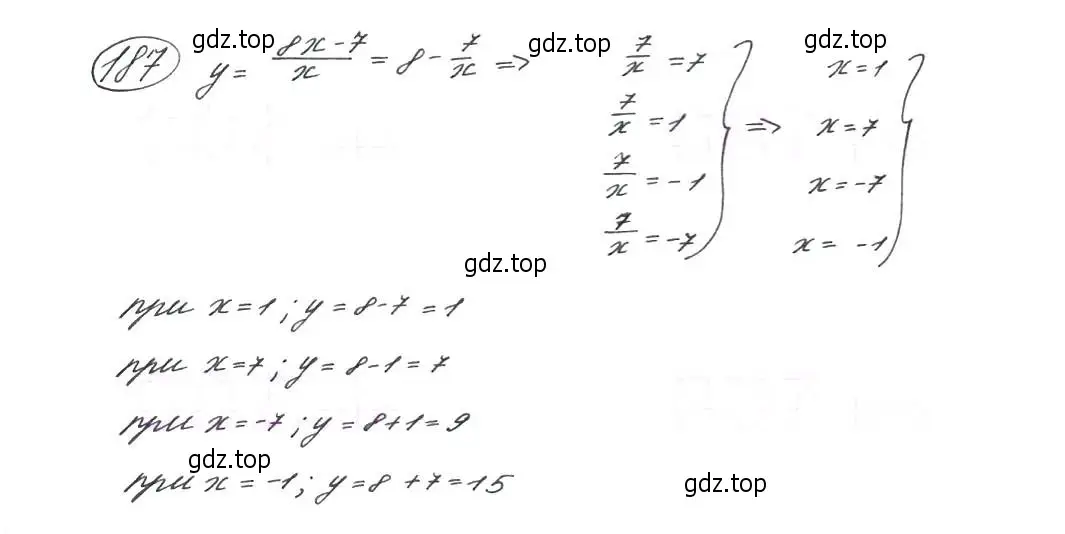 187 y = (8x-7)/x = 8 - 7/x => 7/x = 7 } x=1 }
7/x = 1 => x=7
7/x = -1 x=-7
7/x = -7 x= -1
при x=1; y=8-7=1
при x=7; y=8-1=7
при x=-7; y=8+1=9
при x=-1; y=8+7=15
gdz.top
gdz.top
gdz.top
gdz.top
gdz.top
gdz.top